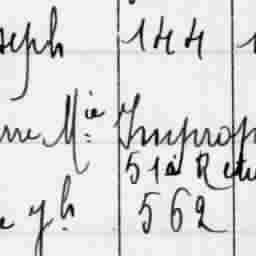 seph 144 1
rre Mie Improp
51 à Retu
e jh. 562